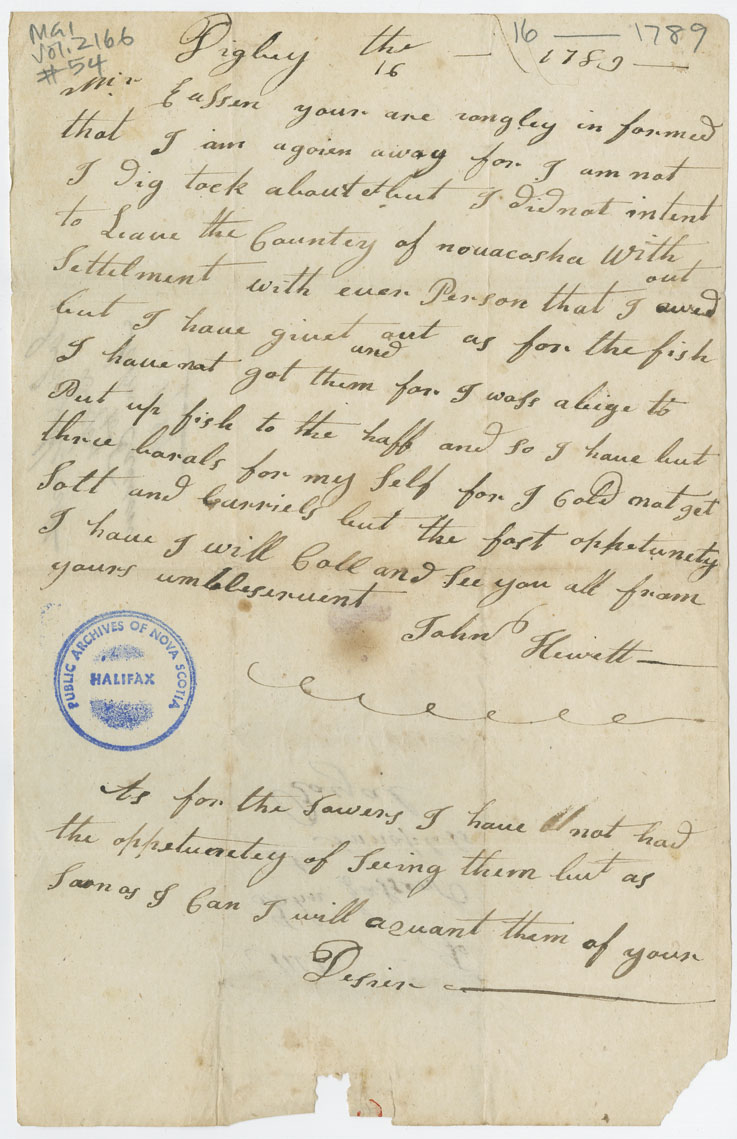 MG1
Vol. 2166
#54
16 — 1789
Digbey the — 1789 —
16
Mir Eassen your are rongley in formed
that I am agoien away for I am not
I Dig tock about it but I did not intent
to Leave the Countey of novacosha With
out
Settelment with ever Person that I owed
but I have givet out as for the fish
and
I have not got them for I wass abige to
Put up fish to the haff and so I have but
three barals for my Self for I Cold not get
Solt and barriels but the fost oppetunety
I have I will Coll and See you all from
yours umble servent
John Hewitt —
PUBLIC ARCHIVES OF NOVA SCOTIA
HALIFAX
As for the Sowers I have not had
the oppetunetey of Seeing them but as
Soon as I Can I will aquant them of your
Desier —